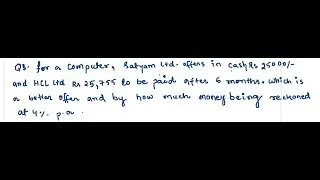 Q3. for a Computer, Satyam Ltd. offers in Cash Rs 25000/-
and HCL Ltd Rs 25,755 to be paid after 6 months. which is
a better offer and by how much money being reckoned
at 4% p.a.